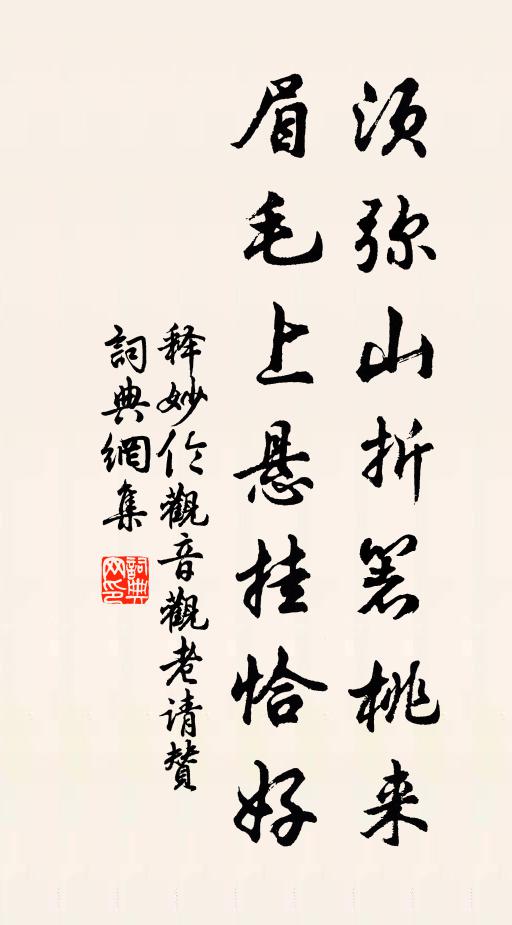 须弥山折箸桃来
眉毛上悬挂恰好
释妙伦觀音觀老请贊
詞典網集
詞典網印